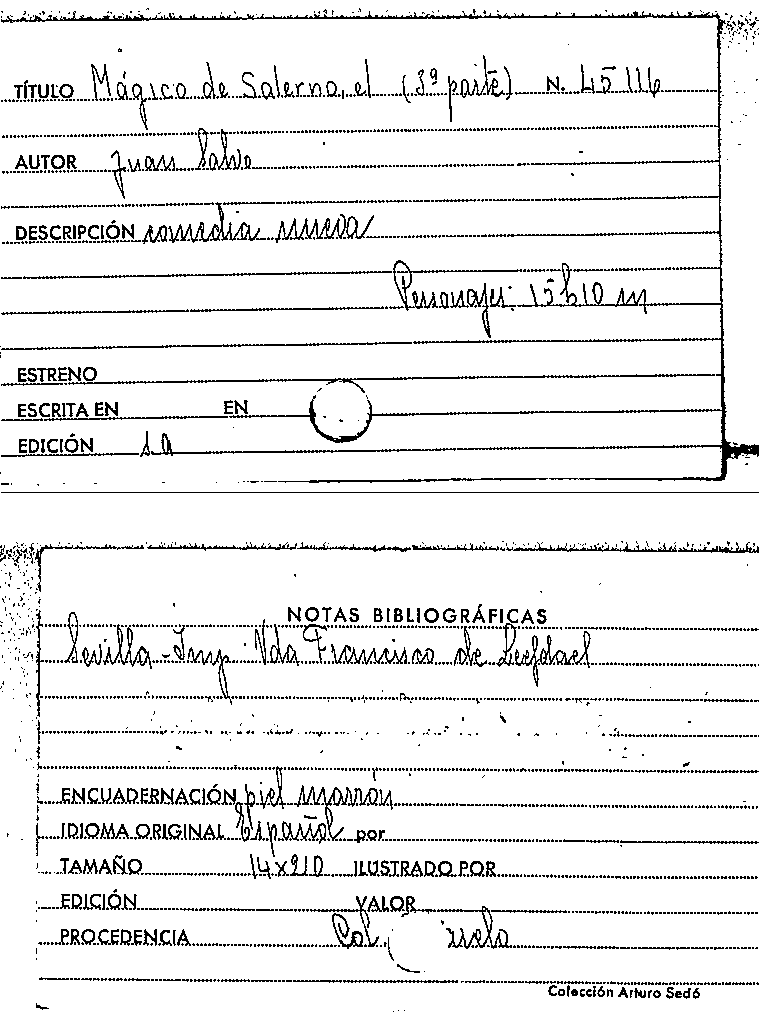 TÍTULO Mágico de Salerno, el (3ª parte) N. 45116
AUTOR Juan Salvo
DESCRIPCIÓN comedia nueva
Personajes: 15 h 10 m
ESTRENO
ESCRITA EN EN
EDICIÓN s.a
NOTAS BIBLIOGRÁFICAS
Sevilla - Imp. Vda Francisco de Leefdael
ENCUADERNACIÓN piel marrón
IDIOMA ORIGINAL Español por
TAMAÑO 14x210 ILUSTRADO POR
EDICIÓN VALOR
PROCEDENCIA Col.
Colección Arturo Sedó